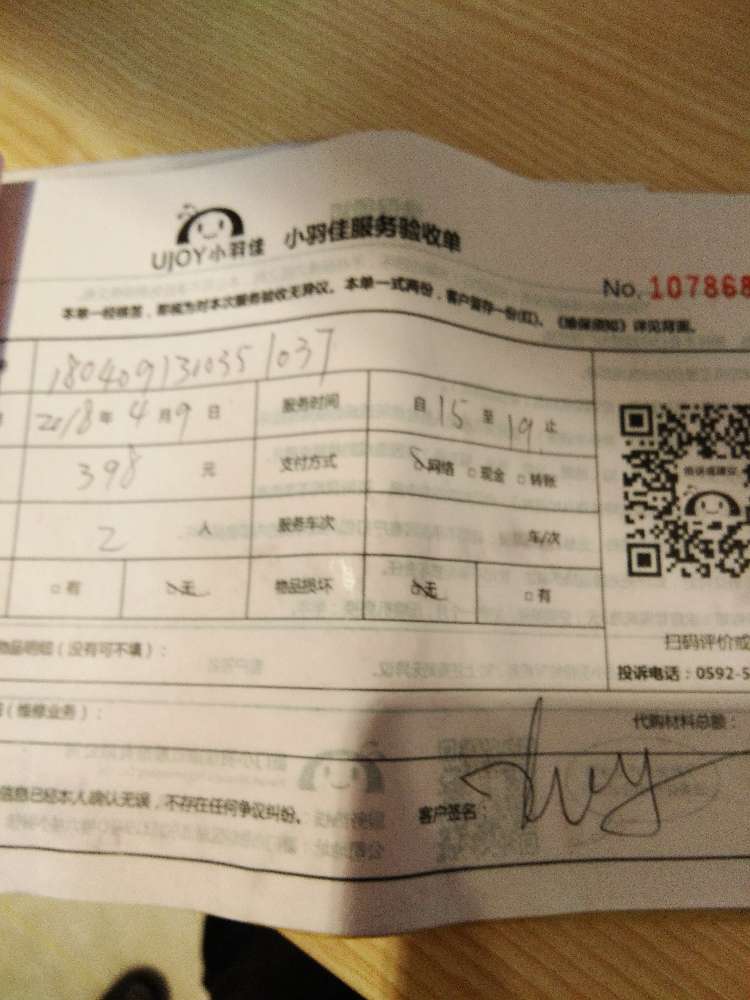 UJOY小羽佳 小羽佳服务验收单
No. 107868
本单一经填签，即视为对本次服务验收无异议。本单一式两份，客户留存一份(红)。《维保须知》详见背面。
1804091310351037
2018年4月9日 服务时间 自15至19止
398元 支付方式 网络 现金 转账
2人 服务车次 车/次
有 无 物品损坏 无 有
物品明细（没有可不填）：
扫码评价或
投诉电话：0592-5
（维修业务）：
代购材料总额：
信息已经本人确认无误，不存在任何争议纠纷。 客户签名：